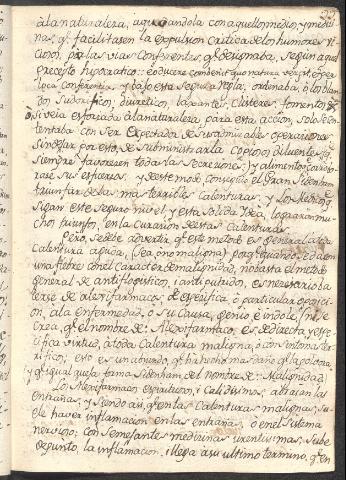 à la naturaleza, ayudandola con aquellos medios, y medici-
nas, q.e facilitasen la expulsion critica de los humores vi-
ciosos, por las vias Conferentes, q.e designaba, segun aquel
precepto hipocratico: eo ducere
loca conferentia, y bajo esta segura Regla, ordenaba, ò los blan-
dos Sudorificos, diureticos, laxantes, Clisteres, fomentos &
ò si veia esforzada à la naturaleza para esta accion, solo se con-
tentaba con Ser Expectador de sus admirables operaciones
sin dejar por esto, de subministrarla Copiosos diluentes (q.e
siempre favorecen todas las secreciones,) y alimentos
sus esfuerzos. y de este modo, consiguio el Gran Sidenham
triunfar de las mas terribles Calenturas, y los Medicos q.e
sigan este seguro nivel, y esta solida Idea, lograran mu-
chos triunfos, en la curacion de estas Calenturas.
Pero, se debe advertir, q.e este metodo es general à toda
Calentura aguda, (sea ò no maligna) porq.e quando se da en
una fiebre con el Caracter de malignidad, no basta el metodo
general de antiflogistico, i antiputrido, es necesario va-
lerse de alexifarmacos, de especifica, ò particular oposi-
cion, à la enfermedad, o su Causa, genio, è indole; (ni se
crea, q.e el nombre de: Alexifarmaco, es de directa y espe-
cifica virtud, à toda Calentura maligna, ò con sintoma ter-
rifico; esto es un absurdo, q.e ha hecho mas daño q.e la polvora,
y q.e igual queja forma Sidenham del nombre de: Malignidad)
Los Alexifarmacos espirituosos, i Calidisimos, abrasan las
entrañas, y siendo asi, q.e en las Calenturas malignas, su-
ele haver inflamacion en las entrañas, ò en el sistema
nervioso; con semejantes medicinas urentisimas, sube
de punto, la inflamacion, i llega a su ultimo termino, q.e en